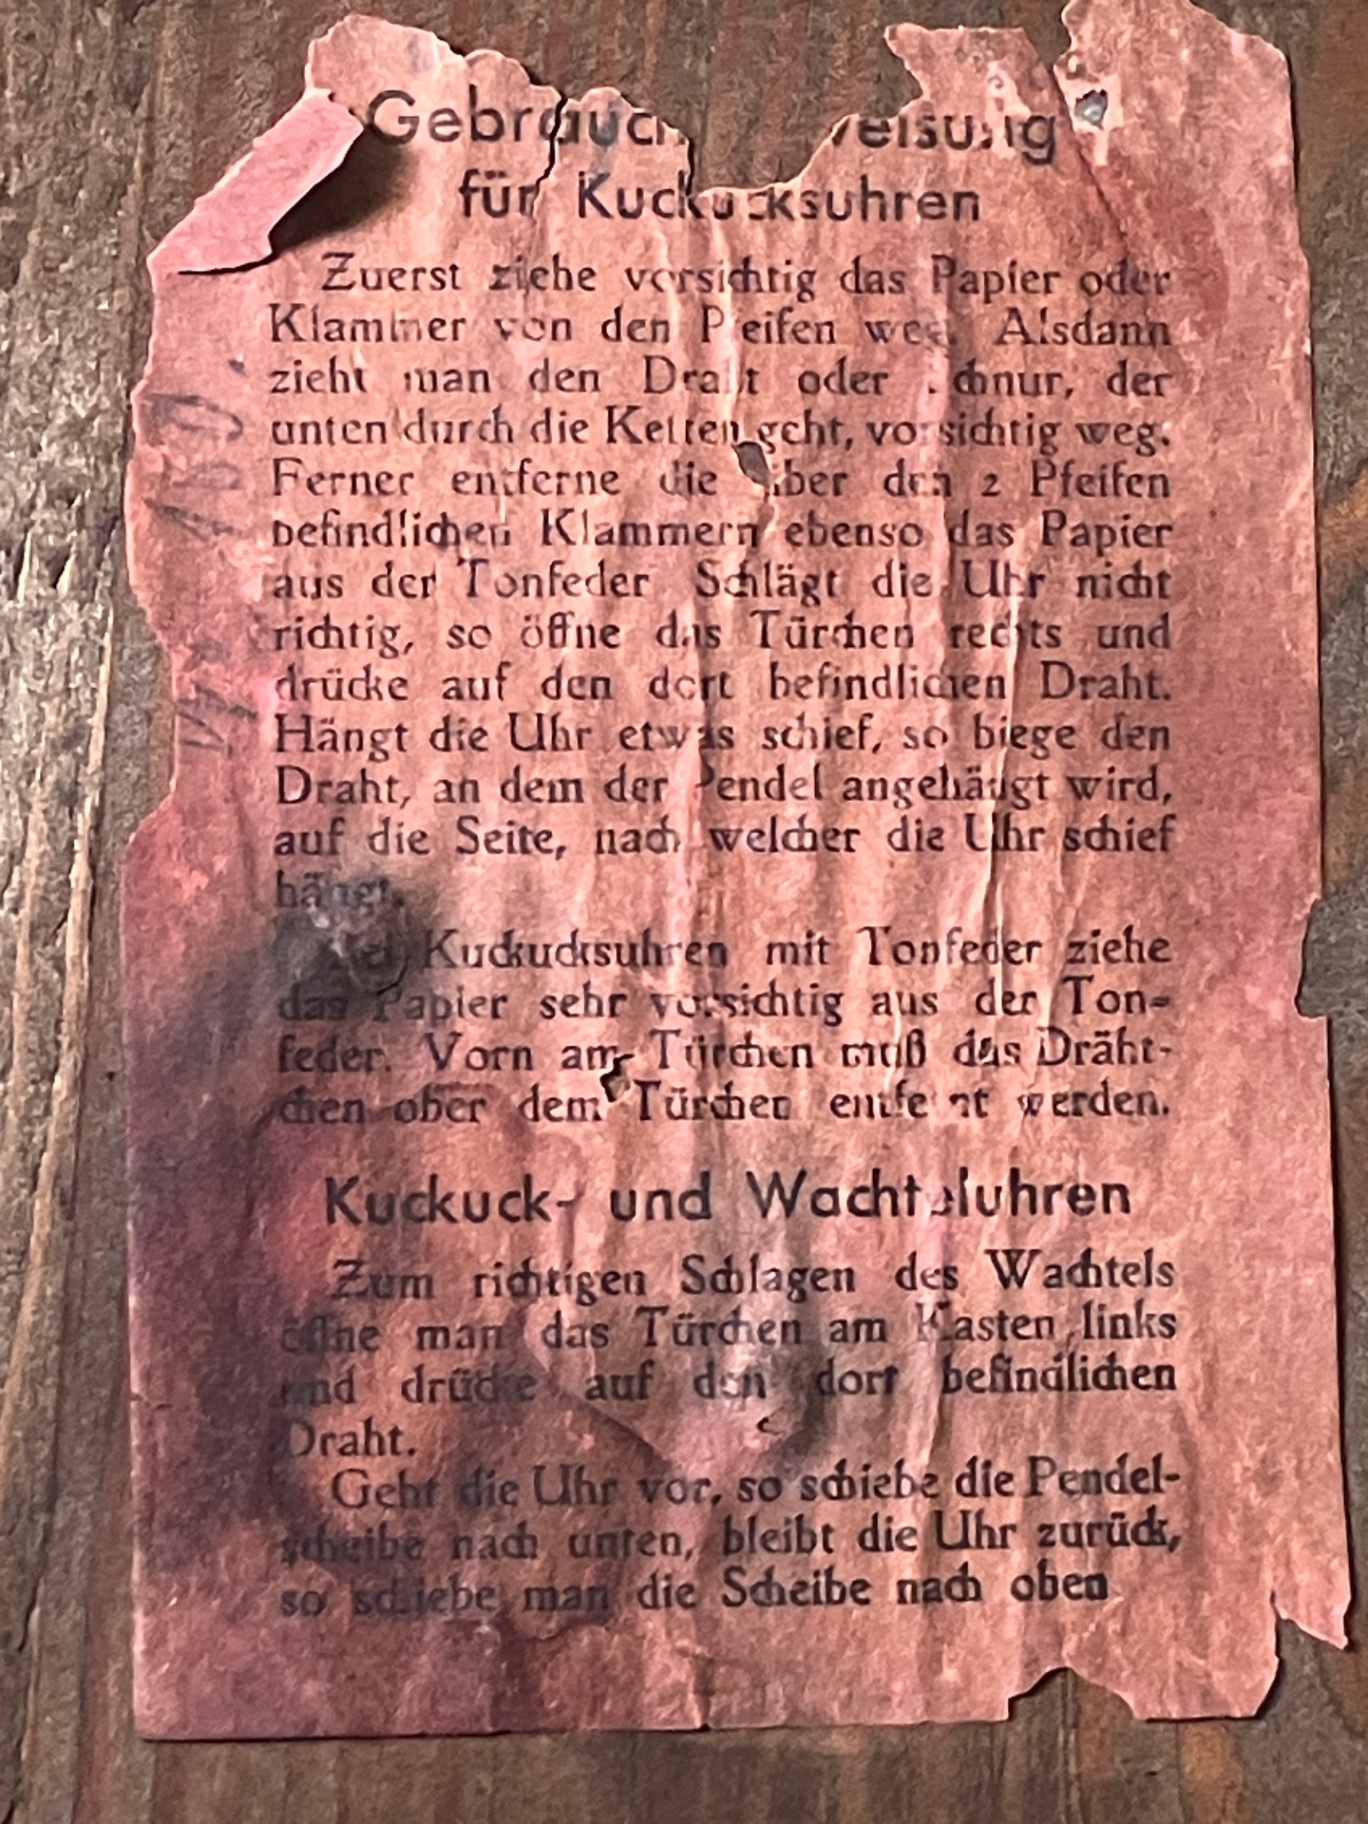 für Kuckucksuhren
Zuerst ziehe vorsichtig das Papier oder
Klammer von den Pfeifen weg. Alsdann
zieht man den Draht oder Schnur, der
unten durch die Ketten geht, vorsichtig weg.
Ferner entferne die über den 2 Pfeifen
befindlichen Klammern ebenso das Papier
aus der Tonfeder Schlägt die Uhr nicht
richtig, so öffne das Türchen rechts und
drücke auf den dort befindlichen Draht.
Hängt die Uhr etwas schief, so biege den
Draht, an dem der Pendel angehängt wird,
auf die Seite, nach welcher die Uhr schief
hängt.
Bei Kuckucksuhren mit Tonfeder ziehe
das Papier sehr vorsichtig aus der Ton-
feder. Vorn am Türchen muß das Dräht-
chen ober dem Türchen entfernt werden.
Kuckuck- und Wachteluhren
Zum richtigen Schlagen des Wachtels
öffne man das Türchen am Kasten links
und drücke auf den dort befindlichen
Draht.
Geht die Uhr vor, so schiebe die Pendel-
scheibe nach unten, bleibt die Uhr zurück,
so schiebe man die Scheibe nach oben